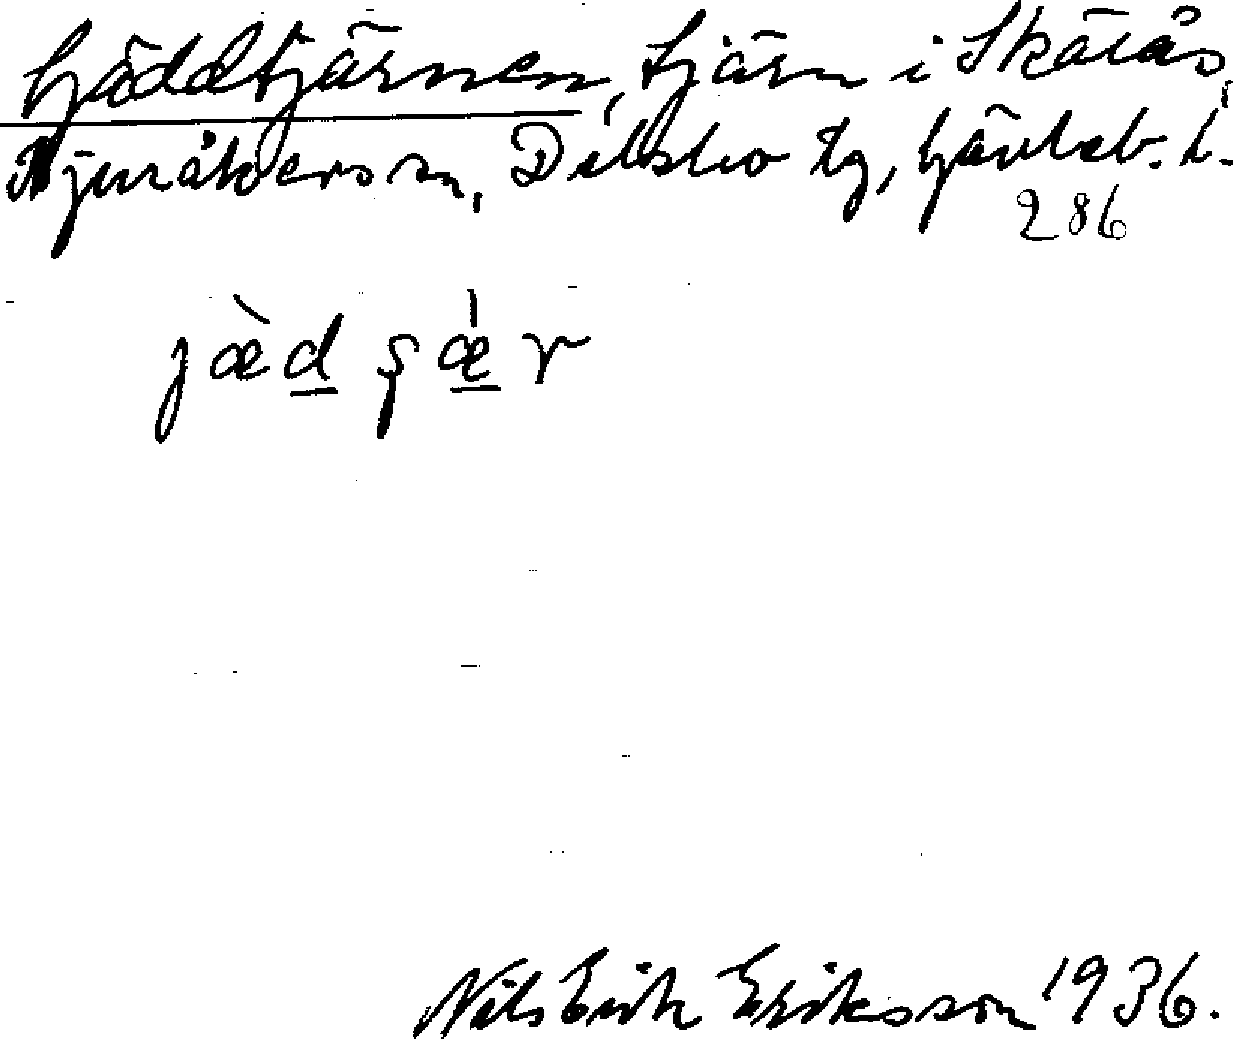 Gäddtjärnen, tjärn i Skärås,
Njutångers sn, Delsbo tg, Gävleb. l.
286
jæ̀d ʂæ̍r
Nils Erik Eriksson 1936.